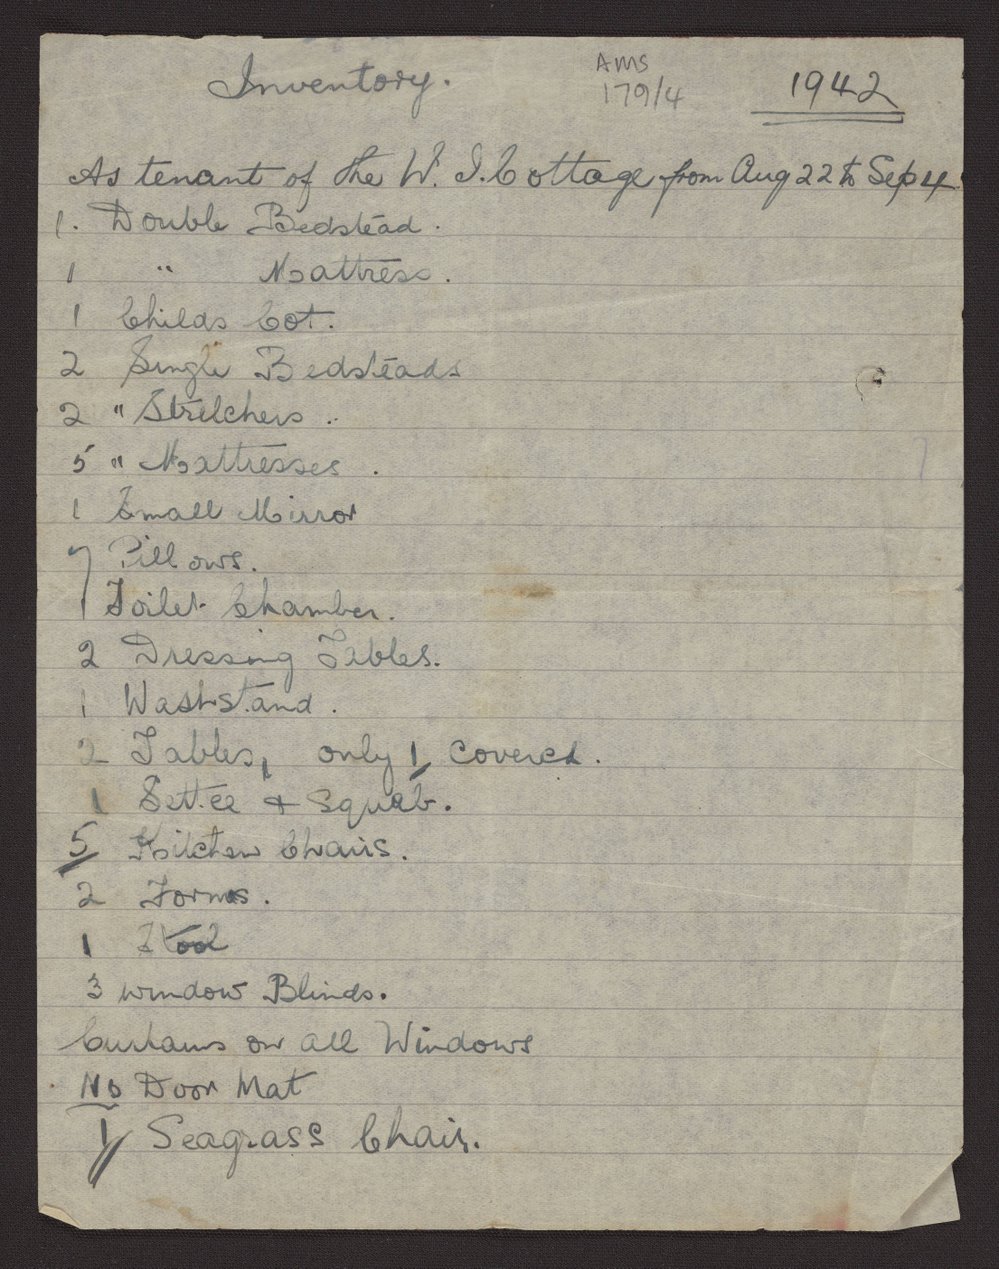 Inventory.
AMS
179/4
1942
As tenant of the W. I. Cottage from Aug 22 to Sep 4
1. Double Bedstead.
1 " Mattress.
1 Childs Cot.
2 Single Bedsteads
2 " Stretchers.
5 " Mattresses.
1 Small Mirror
7 Pillows.
1 Toilet Chamber.
2 Dressing Tables.
1 Washstand.
2 Tables, only 1 covered.
1 Settee & Squab.
5 Kitchen Chairs.
2 Forms.
1 Stool
3 window Blinds.
Curtains on all Windows
No Door Mat
1 Seagrass Chair.